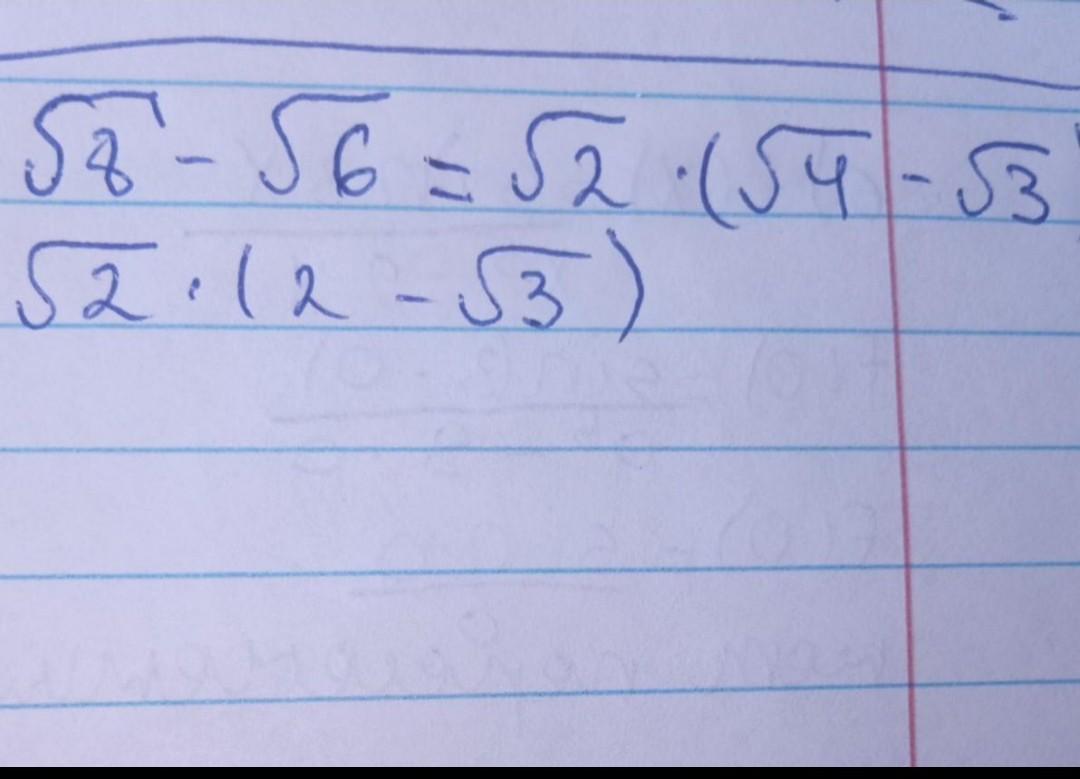 √8 - √6 = √2 · (√4 - √3)
√2 · (2 - √3)